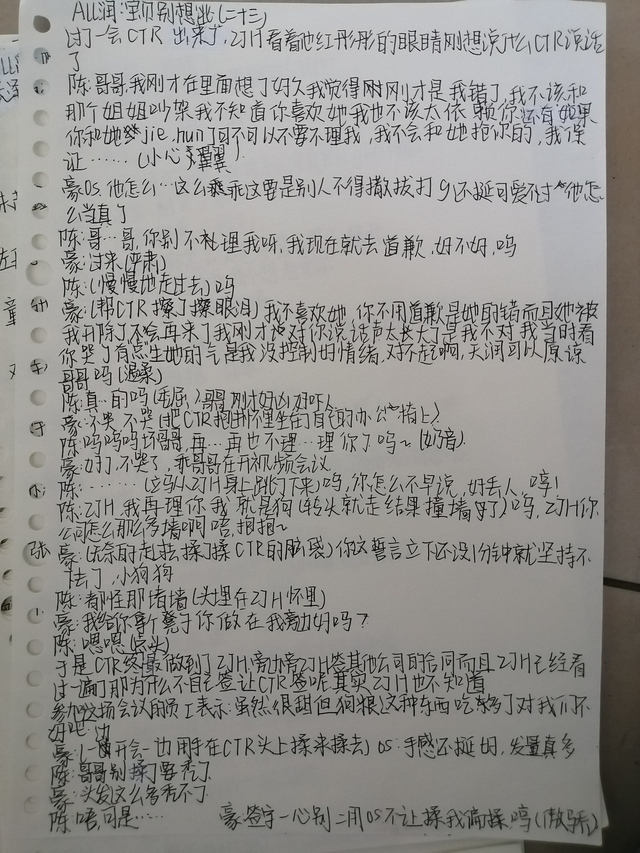 All润:宝贝别想逃(二十三)
过了一会CTR 出来了,ZJH看着他红彤彤的眼睛刚想说什么CTR说话
了
陈:哥哥,我刚才在里面想了好久我觉得刚刚才是我错了,我不该和
那个姐姐吵架我不知道你喜欢她,我也不该太依赖你,还有如果
你和她jie.hun了可不可以不要不理我,我不会和她抢你的,我保
证……(小心翼翼)
豪OS他怎么…这么乖乖这要是别人不得撒拔打g还挺可爱不过他怎
么当真了
陈:哥…哥,你别不理我呀,我现在就去道歉,好不好,呜
豪:过来(严肃)
陈:(慢慢地走过去)呜
豪:(帮CTR擦了擦眼泪)我不喜欢她,你不用道歉是她的错而且她被
我开除了不会再来了我刚才对你说话声太大了是我不对我当时看
你哭了有点生她的气是我没控制好情绪,对不起啊,天润可以原谅
哥哥吗(温柔)
陈真…的吗(委屈)哥哥刚才好凶好吓人
豪:不哭不哭(把CTR抱到怀里坐在自己的办公椅上)
陈呜呜呜坏哥哥,再…再也不理…理你了呜~(奶音)
豪:好了,不哭了,乖哥哥在开视频会议
陈:……(立马从ZJH身上跳下来)呜,你怎么不早说,好丢人,哼!
陈:ZJH,我再理你我就是狗(转头就走结果撞墙好了)呜,ZJH你
公司怎么那么多墙啊唔,抱抱~
豪:(无奈的走去,揉了揉CTR的脑袋)你这誓言立下还没1分钟就坚持不
住了,小狗狗
陈:都怪那堵墙(头埋在ZJH怀里)
豪:我给你拿个凳子你做在我旁边好吗?
陈:嗯嗯(点头)
于是CTR终最做到了ZJH旁边帮ZJH签其他公司的合同而且ZJH已经看
过一遍了那为什么不自己签让CTR签呢其实ZJH也不知道
参加这场会议的员工表示:虽然很甜但狗粮这种东西吃够了对我们不
好吧
豪:(一边开会一边用手在CTR头上揉来揉去)OS:手感还挺好,发量真多
陈:哥哥别揉了要秃了
豪:头发这么多秃不了
陈:唔,可是…… 豪签字一心别二用OS不让揉我偏揉哼(傲娇)